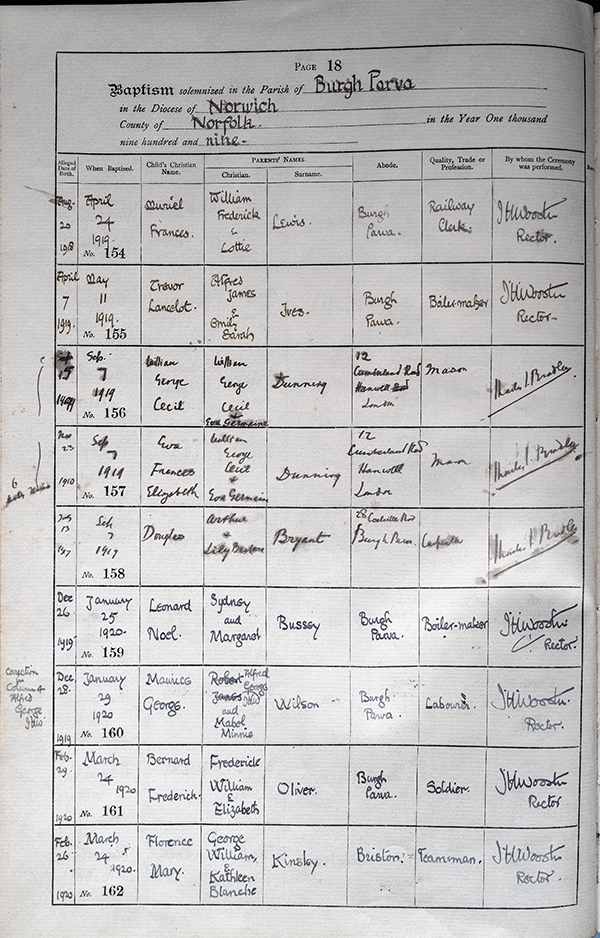 PAGE 18
Baptism solemnized in the Parish of Burgh Parva
in the Diocese of Norwich
County of Norfolk. in the Year One thousand
nine hundred and nine-
Alleged Date of Birth. When Baptised. Child's Christian Name. PARENTS' NAMES Christian. Surname. Abode. Quality, Trade or Profession. By whom the Ceremony was performed.
Aug. 20 1918
April 24 1919.
No. 154
Muriel Frances.
William Frederick & Lottie
Lewis.
Burgh Parva.
Railway Clerk.
Rector.
April 7 1919.
May 11 1919.
No. 155
Trevor Lancelot.
Alfred James & Emily Sarah
Ives.
Burgh Parva.
Boiler-maker
Rector.
15
Sep. 7 1919
No. 156
William George Cecil
William George Cecil Eva Germaine
Dunning
12 Cumberland Road Hanwell London
Mason
Charles L. Bradley
Nov 23 1910
Sep 7 1919
No. 157
Eva Frances Elizabeth
William George Cecil + Eva Germain
Dunning
12 Cumberland Road Hanwell London
Mason
Charles L. Bradley
13
Sep 7 1919
No. 158
Douglas
Arthur + Lily
Bryant
28 Road Burgh Parva
Carpenter
Charles L. Bradley
Dec 26 1919
January 25 1920.
No. 159
Leonard Noel.
Sydney and Margaret
Bussey
Burgh Parva.
Boiler-maker
Rector.
correction in Column 4 Alfred George
Dec 28. 1919
January 29 1920
No. 160
Maurice George.
Robert James Alfred George and Mabel Minnie
Wilson
Burgh Parva.
Labourer.
Rector.
Feb. 29. 1920
March 24 1920
No. 161
Bernard Frederick.
Frederick William & Elizabeth
Oliver.
Burgh Parva.
Soldier.
Rector
Feb. 26 1920
March 24 1920.
No. 162
Florence Mary.
George William, & Kathleen Blanche
Kinsley.
Briston.
Teamsman.
Rector.